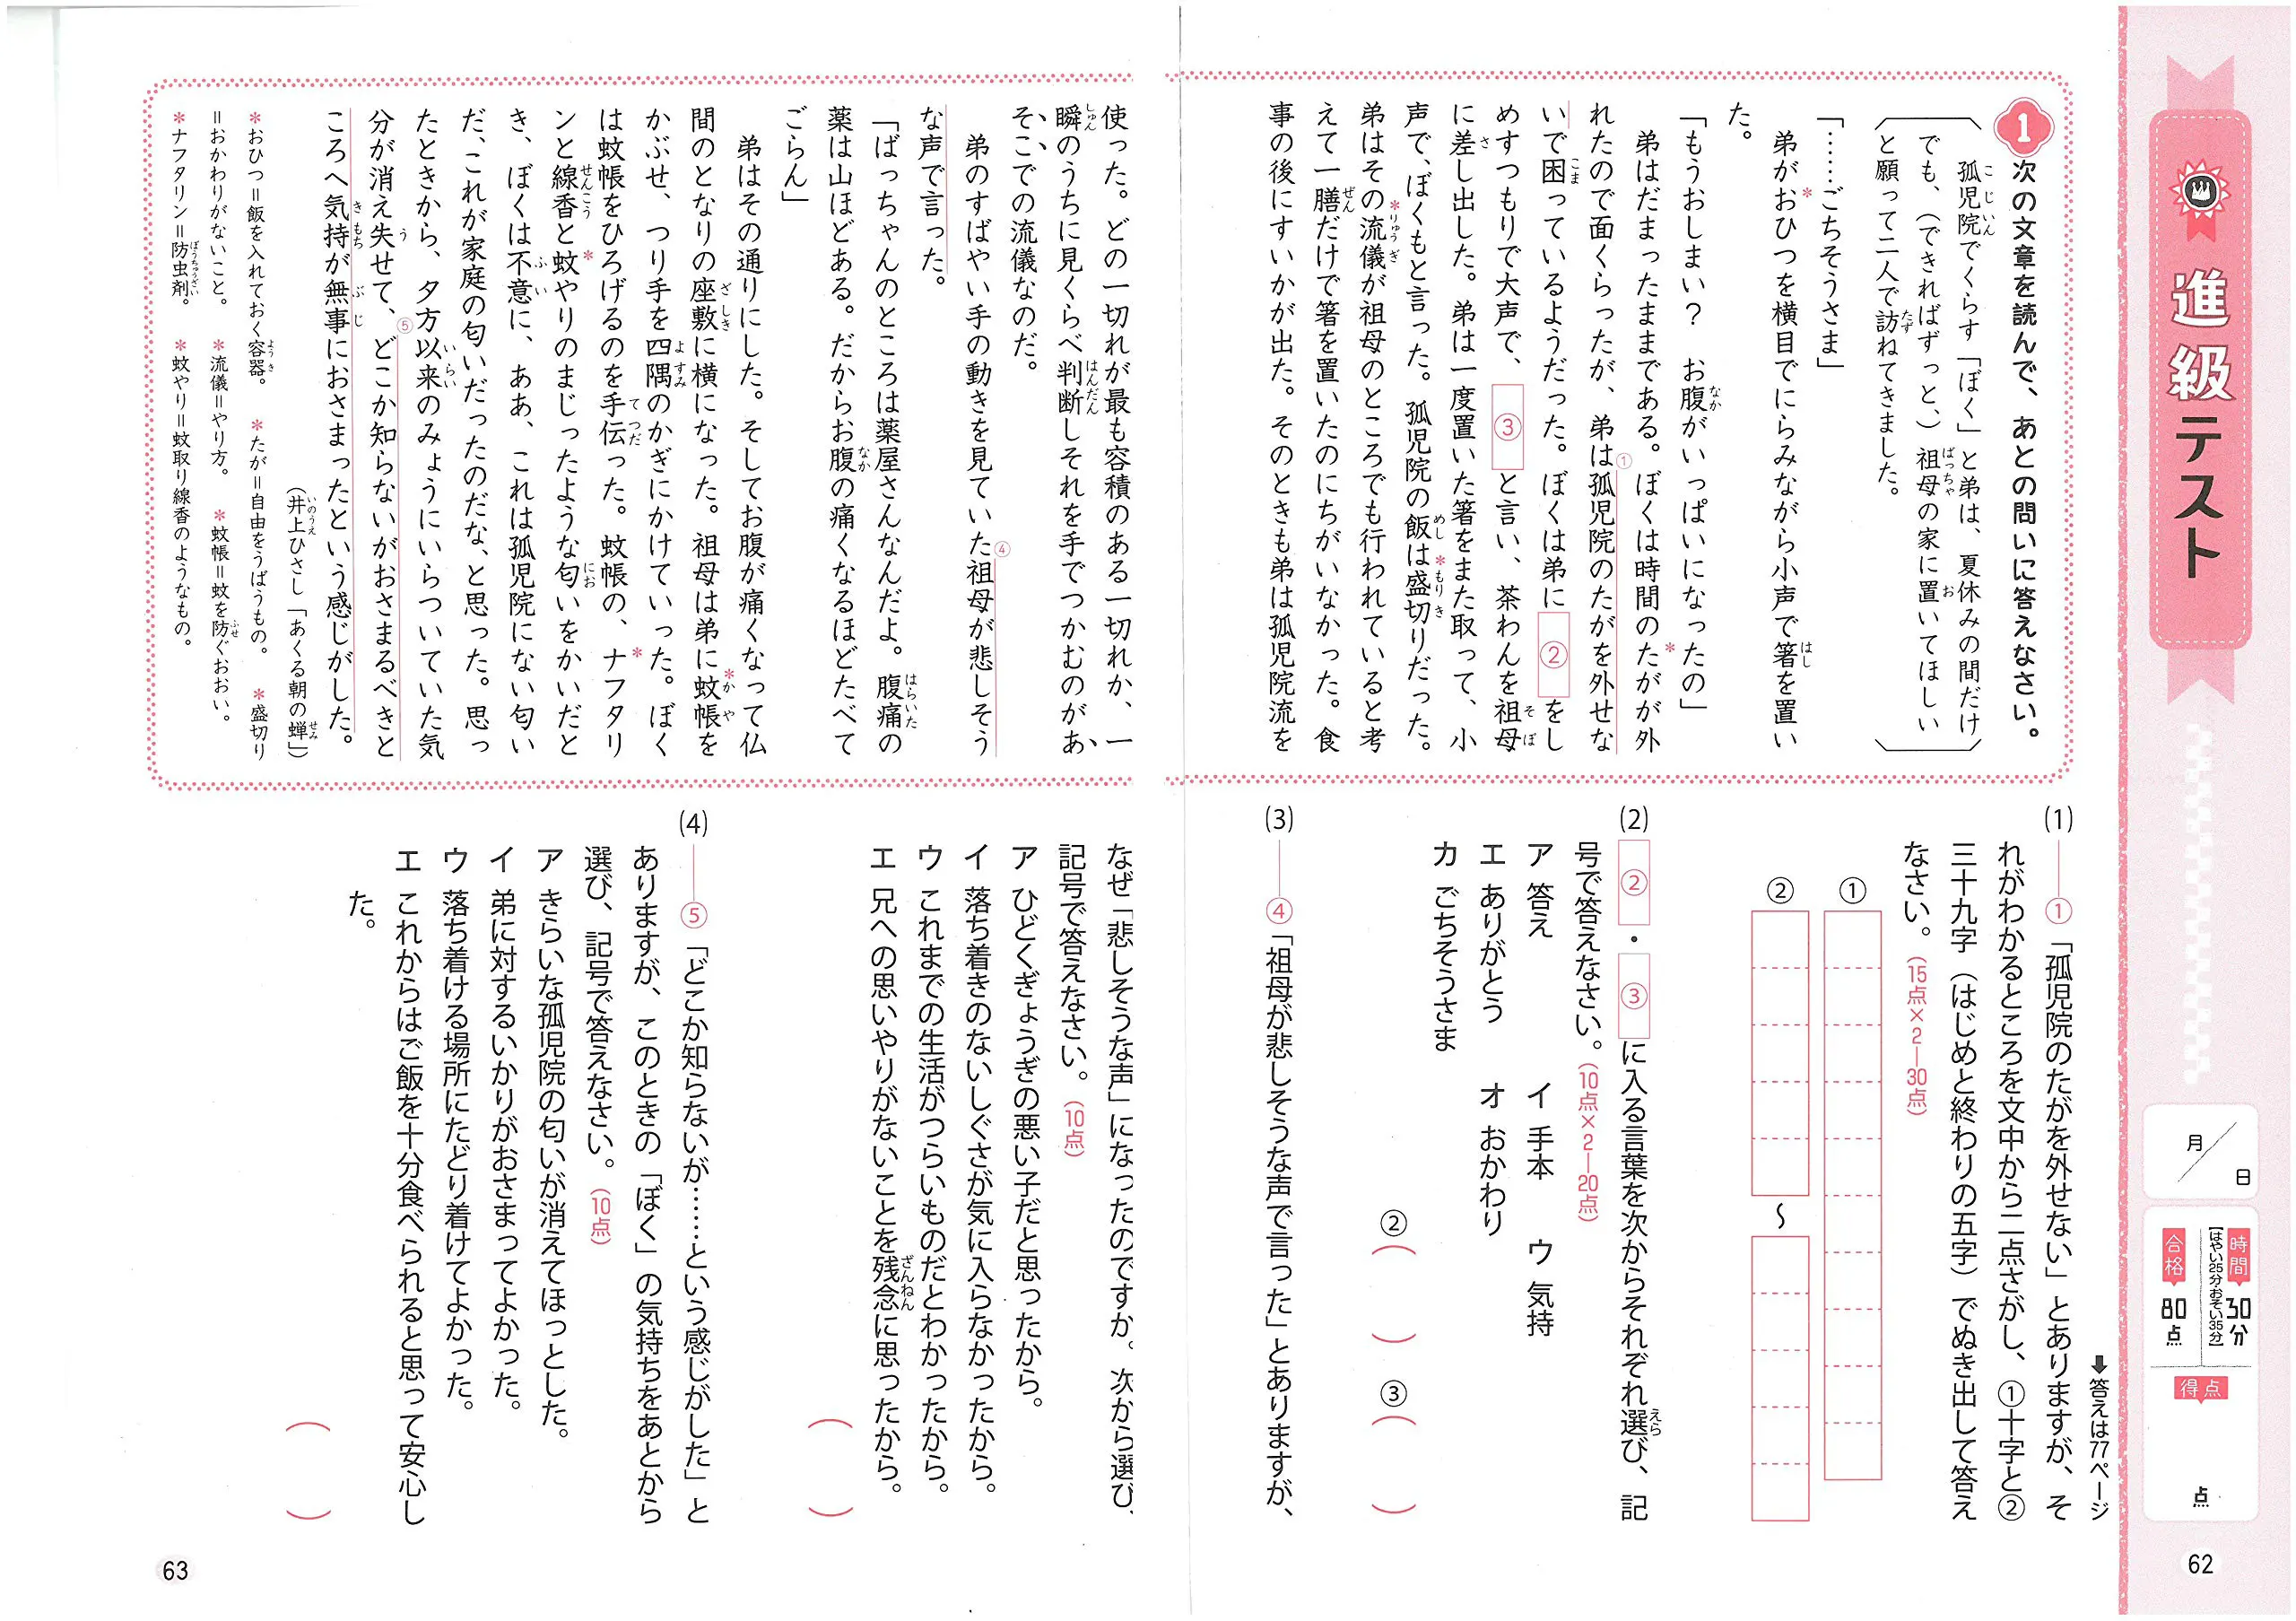 進級テスト
月 日
時間 30分
【はやい25分・おそい35分】
合格 80点
得点
点
➡答えは77ページ
1 次の文章を読んで、あとの問いに答えなさい。
孤児院でくらす「ぼく」と弟は、夏休みの間だけ
でも、(できればずっと、)祖母の家に置いてほしい
と願って二人で訪ねてきました。
「……ごちそうさま」
弟がおひつを横目でにらみながら小声で箸を置い
た。
「もうおしまい? お腹がいっぱいになったの」
弟はだまったままである。ぼくは時間のたがが外
れたので面くらったが、弟は①孤児院のたがを外せな
いで困っているようだった。ぼくは弟に②をし
めすつもりで大声で、③と言い、茶わんを祖母
に差し出した。弟は一度置いた箸をまた取って、小
声で、ぼくもと言った。孤児院の飯は盛切りだった。
弟はその流儀が祖母のところでも行われていると考
えて一膳だけで箸を置いたのにちがいなかった。食
事の後にすいかが出た。そのときも弟は孤児院流を
使った。どの一切れが最も容積のある一切れか、一
瞬のうちに見くらべ判断しそれを手でつかむのがあ
そこでの流儀なのだ。
弟のすばやい手の動きを見ていた④祖母が悲しそう
な声で言った。
「ばっちゃんのところは薬屋さんなんだよ。腹痛の
薬は山ほどある。だからお腹の痛くなるほどたべて
ごらん」
弟はその通りにした。そしてお腹が痛くなって仏
間のとなりの座敷に横になった。祖母は弟に蚊帳を
かぶせ、つり手を四隅のかぎにかけていった。ぼく
は蚊帳をひろげるのを手伝った。蚊帳の、ナフタリ
ンと線香と蚊やりのまじったような匂いをかいだと
き、ぼくは不意に、ああ、これは孤児院にない匂い
だ、これが家庭の匂いだったのだな、と思った。思っ
たときから、夕方以来のみょうにいらついていた気
分が消え失せて、⑤どこか知らないがおさまるべきと
ころへ気持が無事におさまったという感じがした。
(井上ひさし「あくる朝の蝉」)
*おひつ=飯を入れておく容器。 *たが=自由をうばうもの。 *盛切り
=おかわりがないこと。 *流儀=やり方。 *蚊帳=蚊を防ぐおおい。
*ナフタリン=防虫剤。 *蚊やり=蚊取り線香のようなもの。
(1) ――①「孤児院のたがを外せない」とありますが、そ
れがわかるところを文中から二点さがし、①十字と②
三十九字(はじめと終わりの五字)でぬき出して答え
なさい。(15点×2―30点)
①
②
〜
(2) ②・③に入る言葉を次からそれぞれ選び、記
号で答えなさい。(10点×2―20点)
ア 答え イ 手本 ウ 気持
エ ありがとう オ おかわり
カ ごちそうさま
②( ) ③( )
(3) ――④「祖母が悲しそうな声で言った」とありますが、
なぜ「悲しそうな声」になったのですか。次から選び、
記号で答えなさい。(10点)
ア ひどくぎょうぎの悪い子だと思ったから。
イ 落ち着きのないしぐさが気に入らなかったから。
ウ これまでの生活がつらいものだとわかったから。
エ 兄への思いやりがないことを残念に思ったから。
( )
(4) ――⑤「どこか知らないが……という感じがした」と
ありますが、このときの「ぼく」の気持ちをあとから
選び、記号で答えなさい。(10点)
ア きらいな孤児院の匂いが消えてほっとした。
イ 弟に対するいかりがおさまってよかった。
ウ 落ち着ける場所にたどり着けてよかった。
エ これからはご飯を十分食べられると思って安心し
た。
( )
62
63